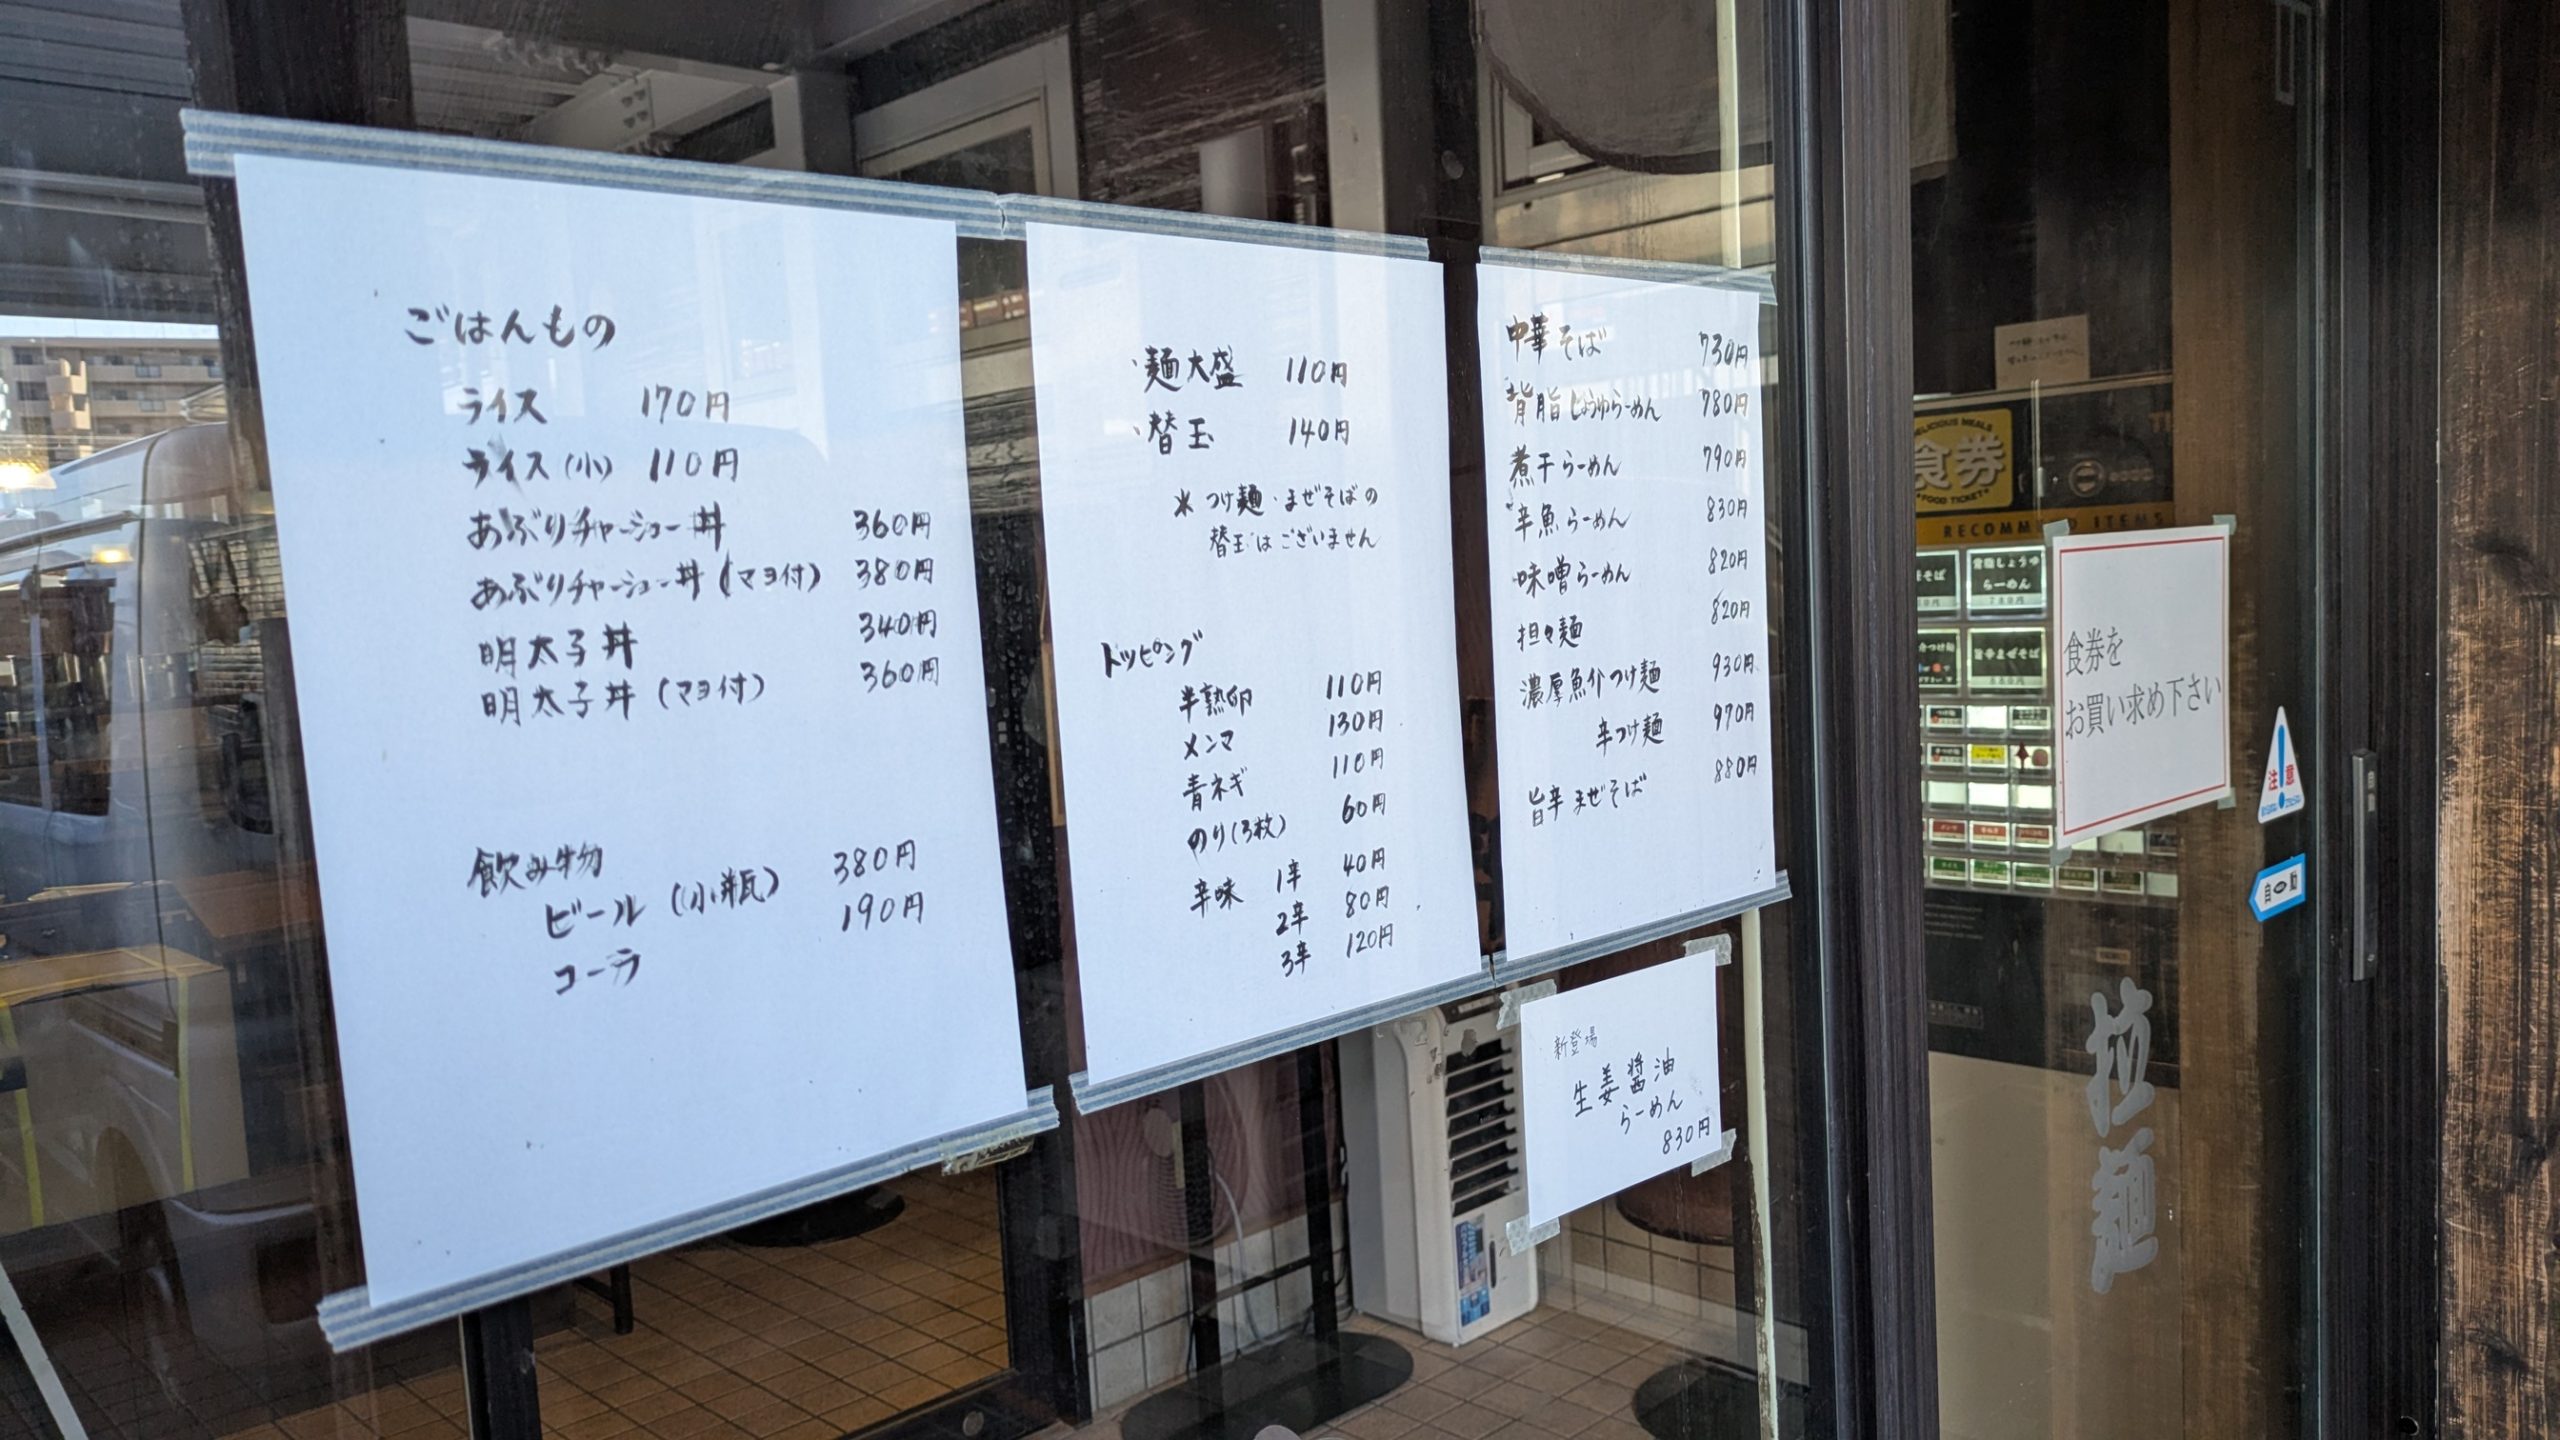 ごはんもの
ライス 170円
ライス(小) 110円
あぶりチャーシュー丼 360円
あぶりチャーシュー丼(マヨ付) 380円
明太子丼 340円
明太子丼(マヨ付) 360円
飲み物
ビール(小瓶) 380円
コーラ 190円
・麺大盛 110円
・替玉 140円
※つけ麺・まぜそばの
替玉はございません
トッピング
半熟卵 110円
メンマ 130円
青ネギ 110円
のり(3枚) 60円
辛味 1辛 40円
2辛 80円
3辛 120円
中華そば 730円
背脂しょうゆらーめん 780円
煮干らーめん 790円
辛魚らーめん 830円
味噌らーめん 820円
担々麺 820円
濃厚魚介つけ麺 930円
辛つけ麺 970円
旨辛まぜそば 880円
新登場
生姜醤油
らーめん
830円
DELICIOUS MEALS
食券
FOOD TICKET
RECOMMEND ITEMS
背脂しょうゆ
らーめん
780円
旨辛まぜそば
880円
食券を
お買い求め下さい
注意
自動
拉麺